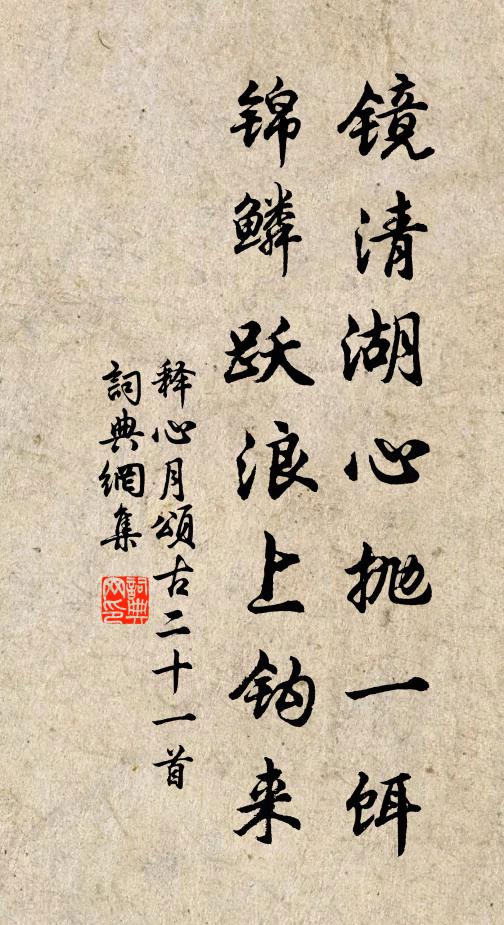 镜清湖心抛一饵
锦鳞跃浪上钩来
释心月颂古二十一首
詞典網集
詞典
网印